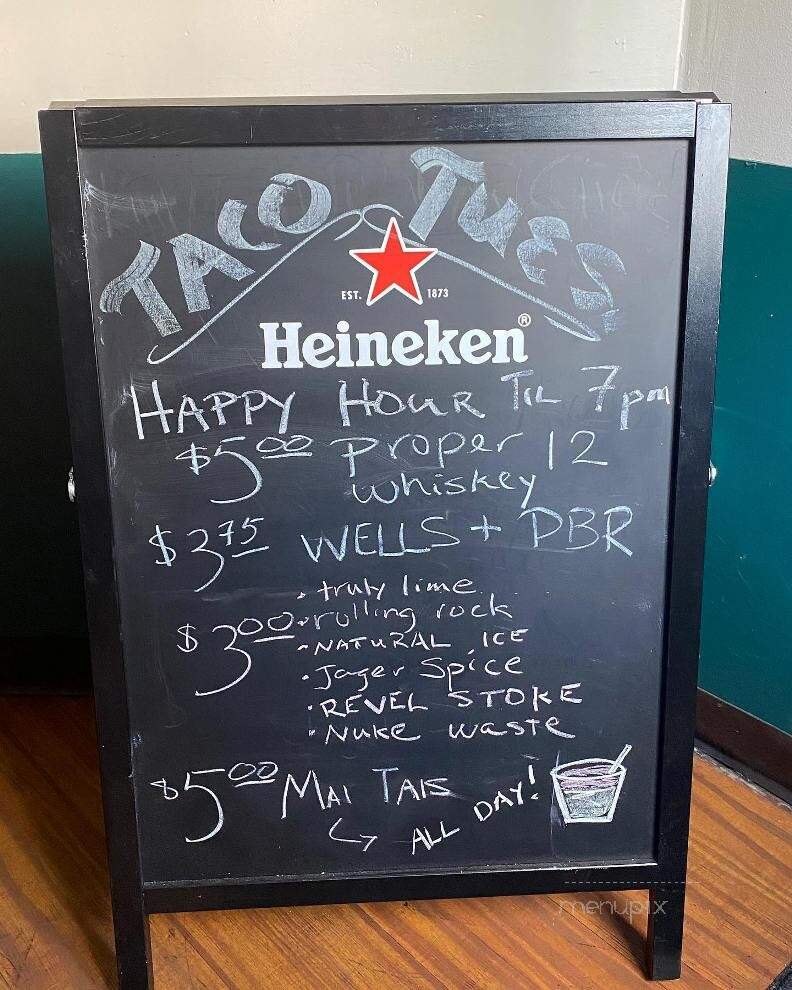 TACO TUES.
EST. 1873
Heineken®
HAPPY HOUR TIL 7pm
$5.00 proper 12
whiskey
$3.75 WELLS + PBR
• truly lime
$3.00 • rolling rock
• NATURAL ICE
• Jager Spice
• REVEL STOKE
• Nuke waste
$5.00 MAI TAIS
↳ ALL DAY!
menupix